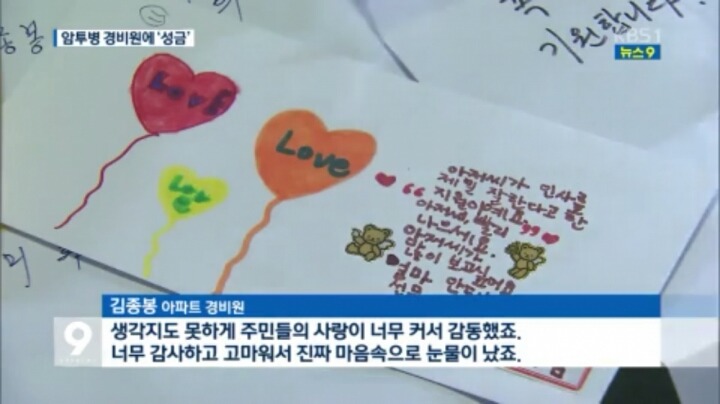 암투병 경비원에 '성금'
KBS1
뉴스9
종봉
기원합니다
Love
Love
Love
아저씨가 인사를
제일 잘 한다고 한
지원이예요.
아저씨, 빨리
나으세요.
아저씨가
많이 보고싶
김종봉 아파트 경비원
9
생각지도 못하게 주민들의 사랑이 너무 커서 감동했죠.
너무 감사하고 고마워서 진짜 마음속으로 눈물이 났죠.